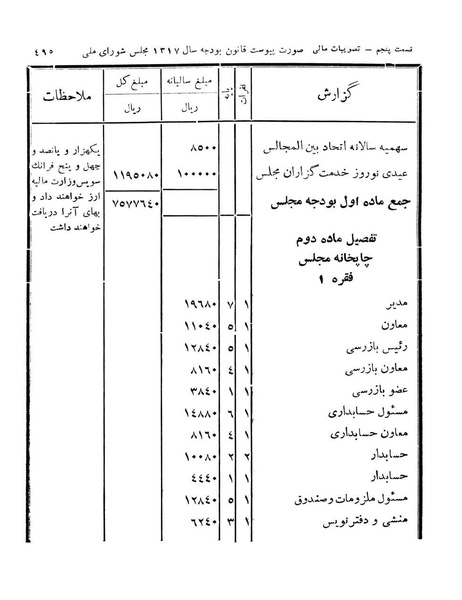 قسمت پنجم – تصویبات مالی صورت پیوست قانون بودجه سال ۱۳۱۷ مجلس شورای ملی ۴۹۵
گزارش نفرات پایه مبلغ سالیانه ریال مبلغ کل ریال ملاحظات
سهمیه سالانه اتحاد بین المجالس ۸۵۰۰
عیدی نوروز خدمت گزاران مجلس ۱۰۰۰۰۰ ۱۱۹۵۰۸۰
جمع ماده اول بودجه مجلس ۷۵۷۷۶۴۰
یکهزار و پانصد و
چهل و پنج فرانك
سویس وزارت مالیه
ارز خواهند داد و
بهای آنرا دریافت
خواهند داشت
تفصیل ماده دوم
چاپخانه مجلس
فقره ۱
مدیر ۱ ۷ ۱۹۶۸۰
معاون ۱ ۵ ۱۱۰۴۰
رئیس بازرسی ۱ ۵ ۱۲۸۴۰
معاون بازرسی ۱ ۴ ۸۱۶۰
عضو بازرسی ۱ ۱ ۳۸۴۰
مسئول حسابداری ۱ ۶ ۱۴۸۸۰
معاون حسابداری ۱ ۴ ۸۱۶۰
حسابدار ۲ ۲ ۱۰۰۸۰
حسابدار ۱ ۱ ۴۴۴۰
مسئول ملزومات وصندوق ۱ ۵ ۱۲۸۴۰
منشی و دفتر نویس ۱ ۳ ۶۲۴۰